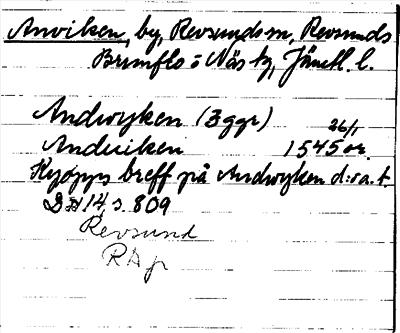 Anviken, by, Revsunds sn, Revsunds
Brunflo o Näs tg, Jämtl. l.
Andwyken (3 ggr) 26/1
Anduiken 1545 or.
Kyøpps breff på Andwyken d:o a.t.
DN 14, s. 809
Revsund
RA p